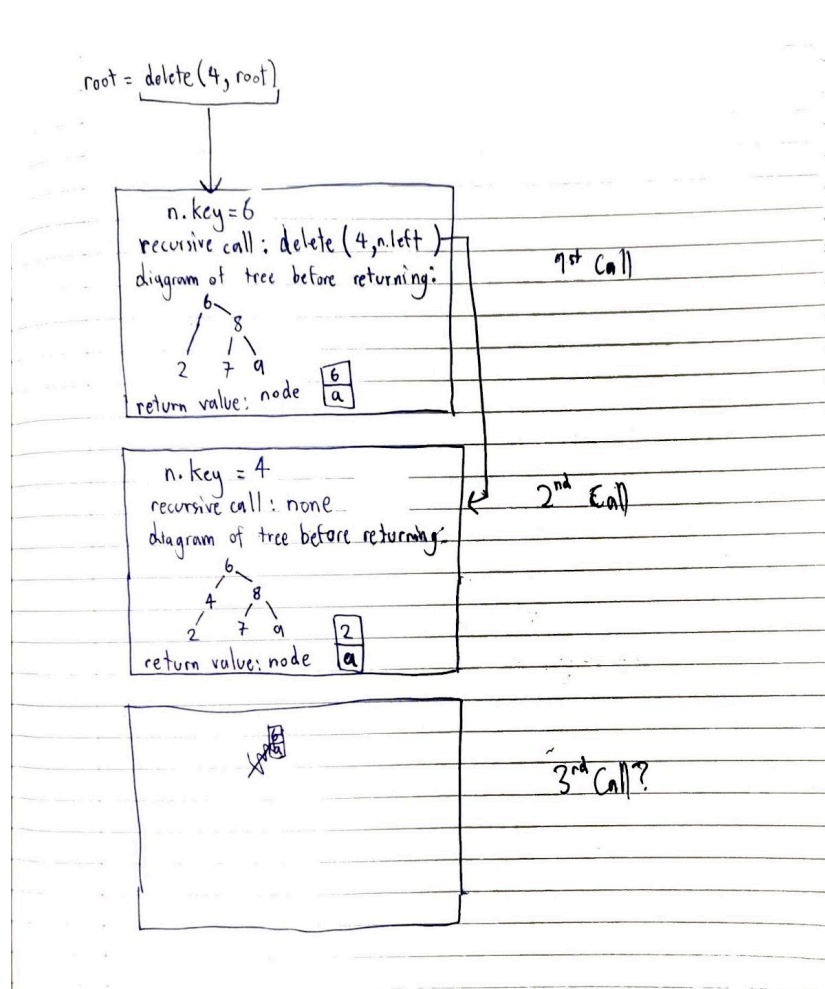 root = delete(4, root)
n.key=6
recursive call: delete (4,n.left)
diagram of tree before returning:
6
8
2 7 9
6
return value: node a
1st Call
n.key = 4
recursive call: none
diagram of tree before returning:
6
4 8
2 7 9
2
return value: node a
2nd Call
6
a
3rd Call?